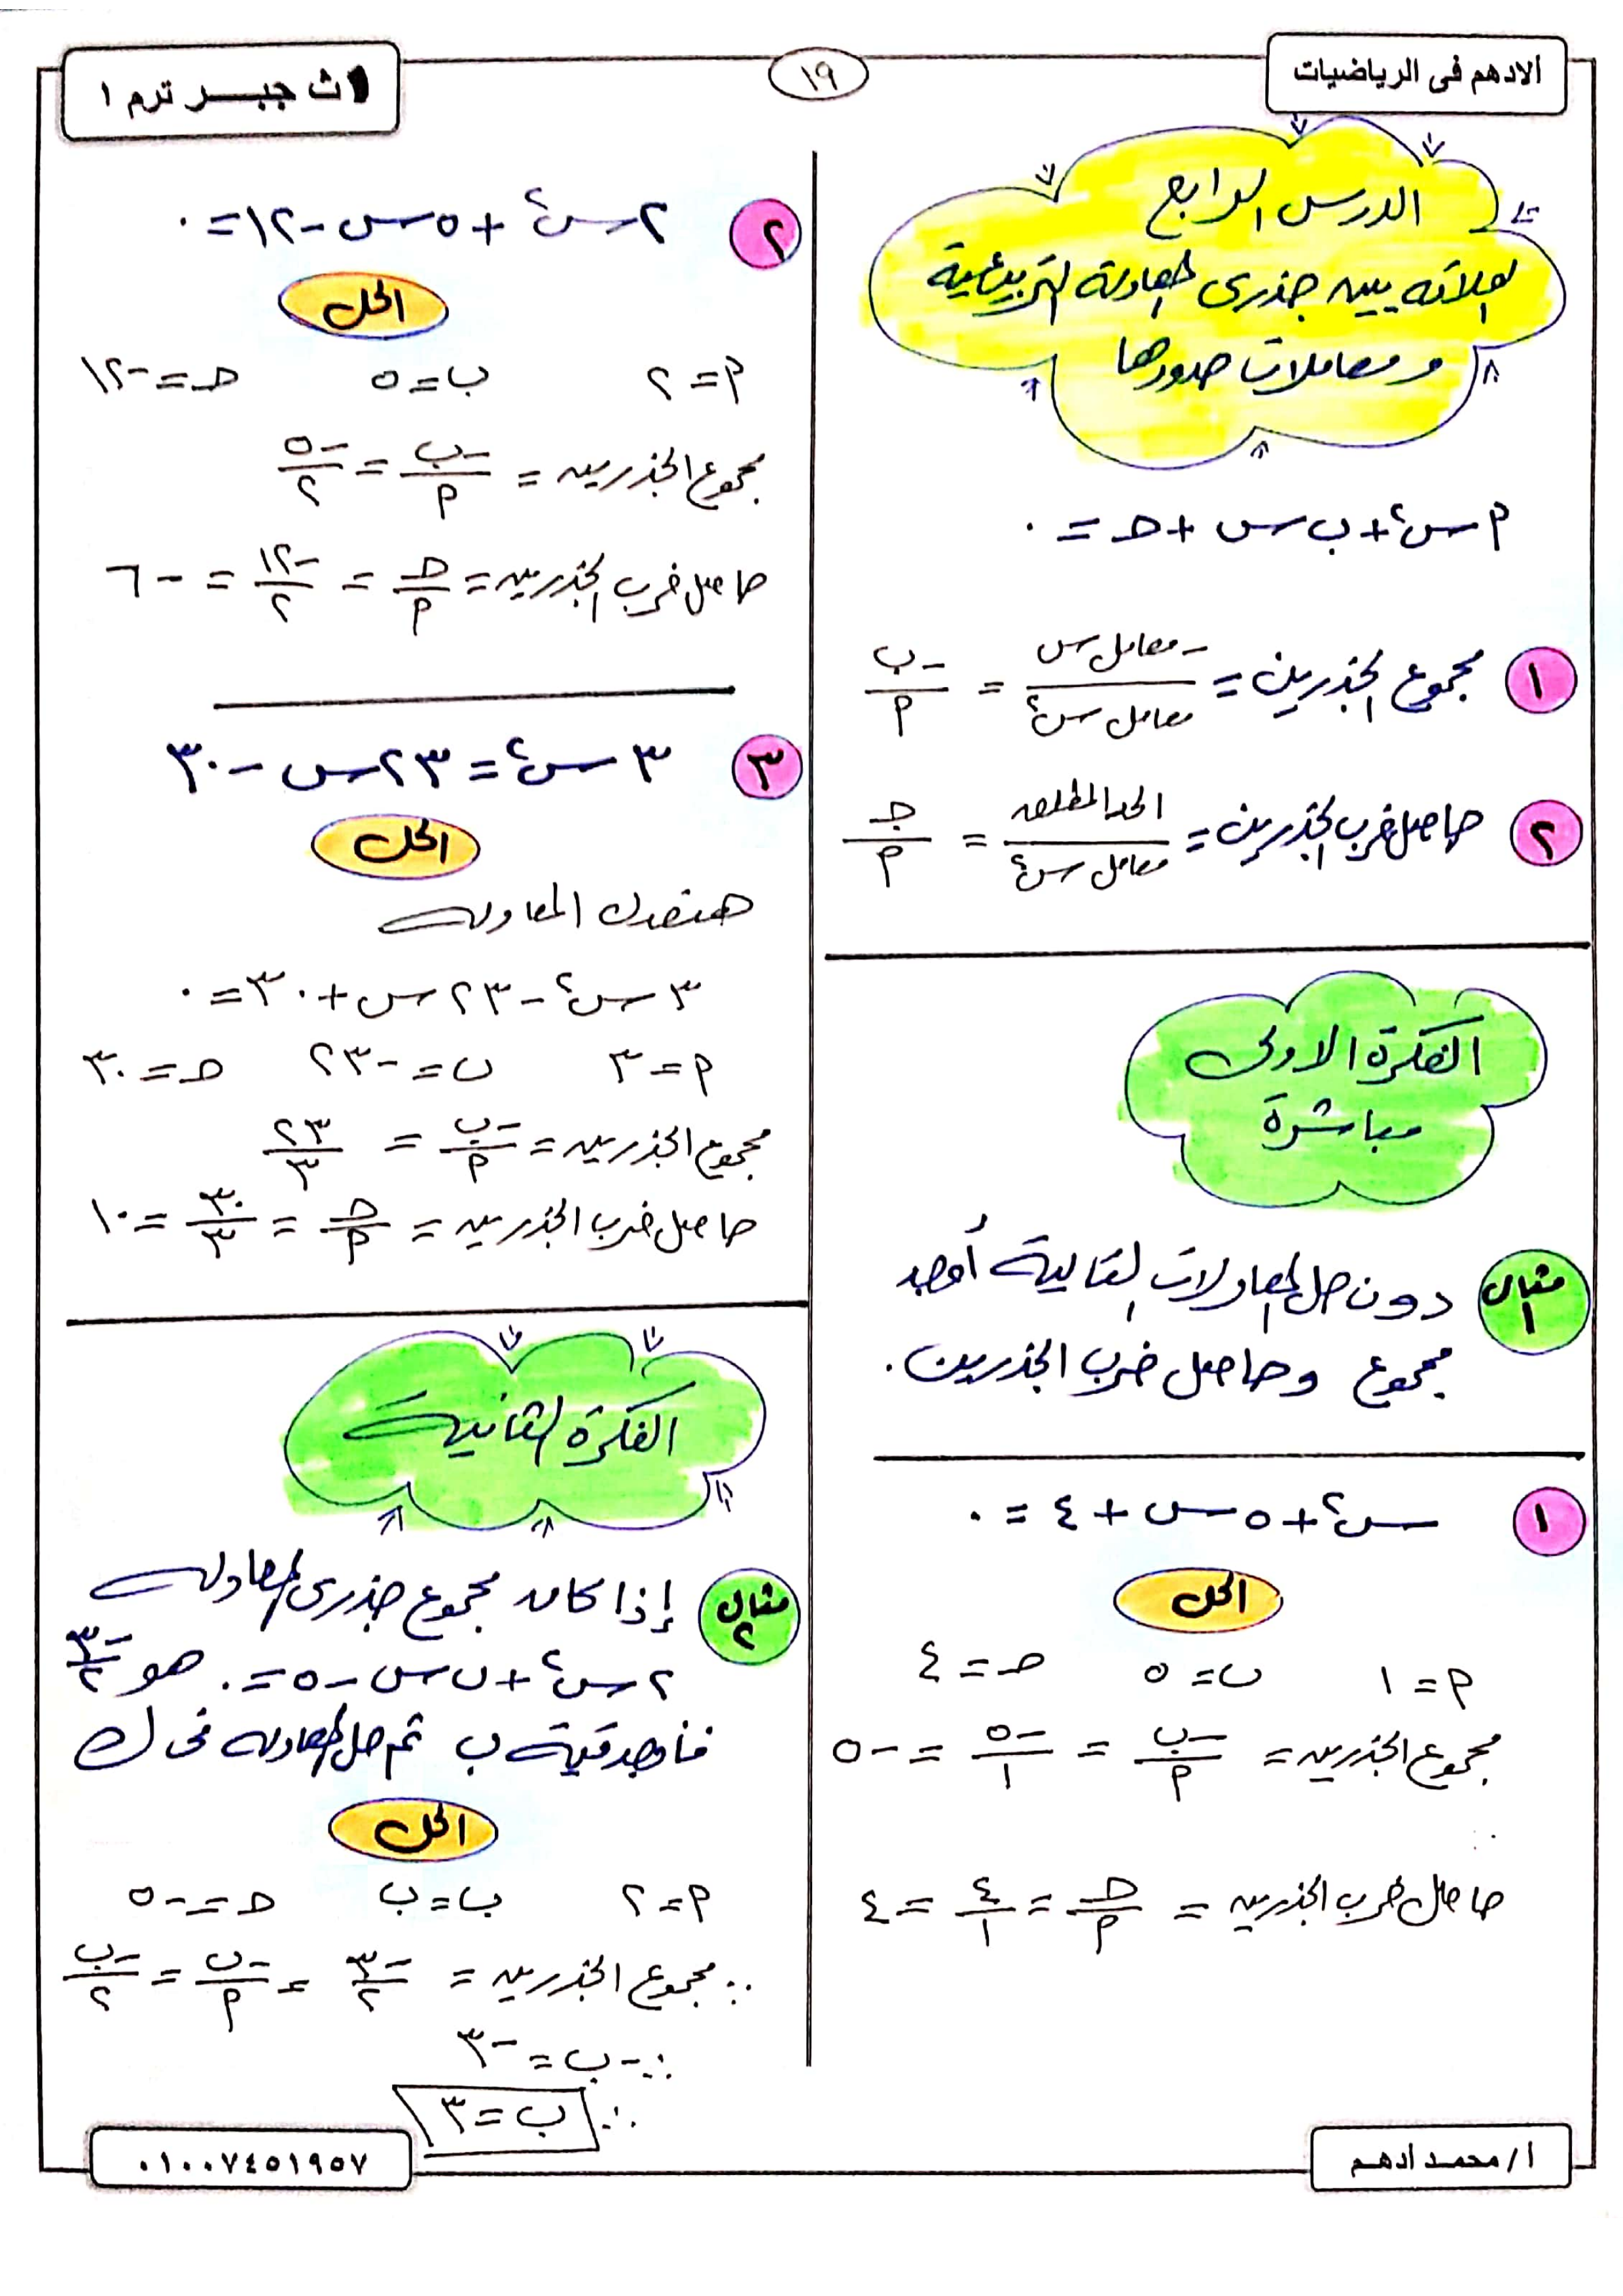 الادهم فى الرياضيات
١٩
١ث جبـــر ترم ١
الدرس الرابع
العلاقه بين جذرى المعادلة التربيعية
ومعاملات حدودها
٢س + ب س + حـ = ٠
١ مجموع الجذرين = -معامل س / معامل س٢ = -ب / ٢
٢ حاصل ضرب الجذرين = الحد المطلق / معامل س٢ = جـ / ٢
الفكرة الاولى
مباشرة
مثال ١ دون حل المعادلات التالية أوجد
مجموع وحاصل ضرب الجذرين .
١ س٢ + ٥س + ٤ = ٠
الحل
٢ = ١ ب = ٥ حـ = ٤
مجموع الجذرين = -ب / ٢ = -٥ / ١ = -٥
حاصل ضرب الجذرين = حـ / ٢ = ٤ / ١ = ٤
٢ ٢س٢ + ٥س - ١٢ = ٠
الحل
٢ = ٢ ب = ٥ حـ = -١٢
مجموع الجذرين = -ب / ٢ = -٥ / ٢
حاصل ضرب الجذرين = حـ / ٢ = -١٢ / ٢ = -٦
٣ ٣س٢ = ٢٣س - ٣٠
الحل
هنعدل المعادله
٣س٢ - ٢٣س + ٣٠ = ٠
٢ = ٣ ب = -٢٣ حـ = ٣٠
مجموع الجذرين = -ب / ٢ = ٢٣ / ٣
حاصل ضرب الجذرين = حـ / ٢ = ٣٠ / ٣ = ١٠
الفكرة الثانية
مثال ٢ إذا كان مجموع جذرى المعادله
٢س٢ + ب س - ٥ = ٠ هو -٣ / ٢
فأوجد قيمة ب ثم حل المعادله فى ك
الحل
٢ = ٢ ب = ب حـ = -٥
∵ مجموع الجذرين = -٣ / ٢ = -ب / ٢ = -ب / ٢
∴ -ب = -٣
∴ ب = ٣
أ / محمد ادهم
٠١٠٠٧٤٥١٩٥٧